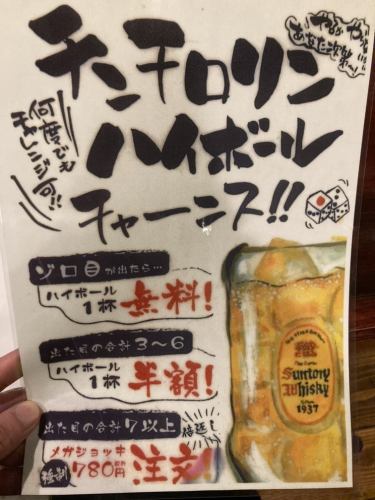 チンチロリン
ハイボール
チャーンス!!
やるか やらないか
あなた次第
何度でも
チャレンジ可!!
ゾロ目が出たら…
ハイボール
1杯
無料!
出た目の合計3~6
ハイボール
1杯
半額!
出た目の合計7以上
倍返し
メガジョッキ
強制
780円
注文!
The Suntory
Suntory
Whisky
Since
1937